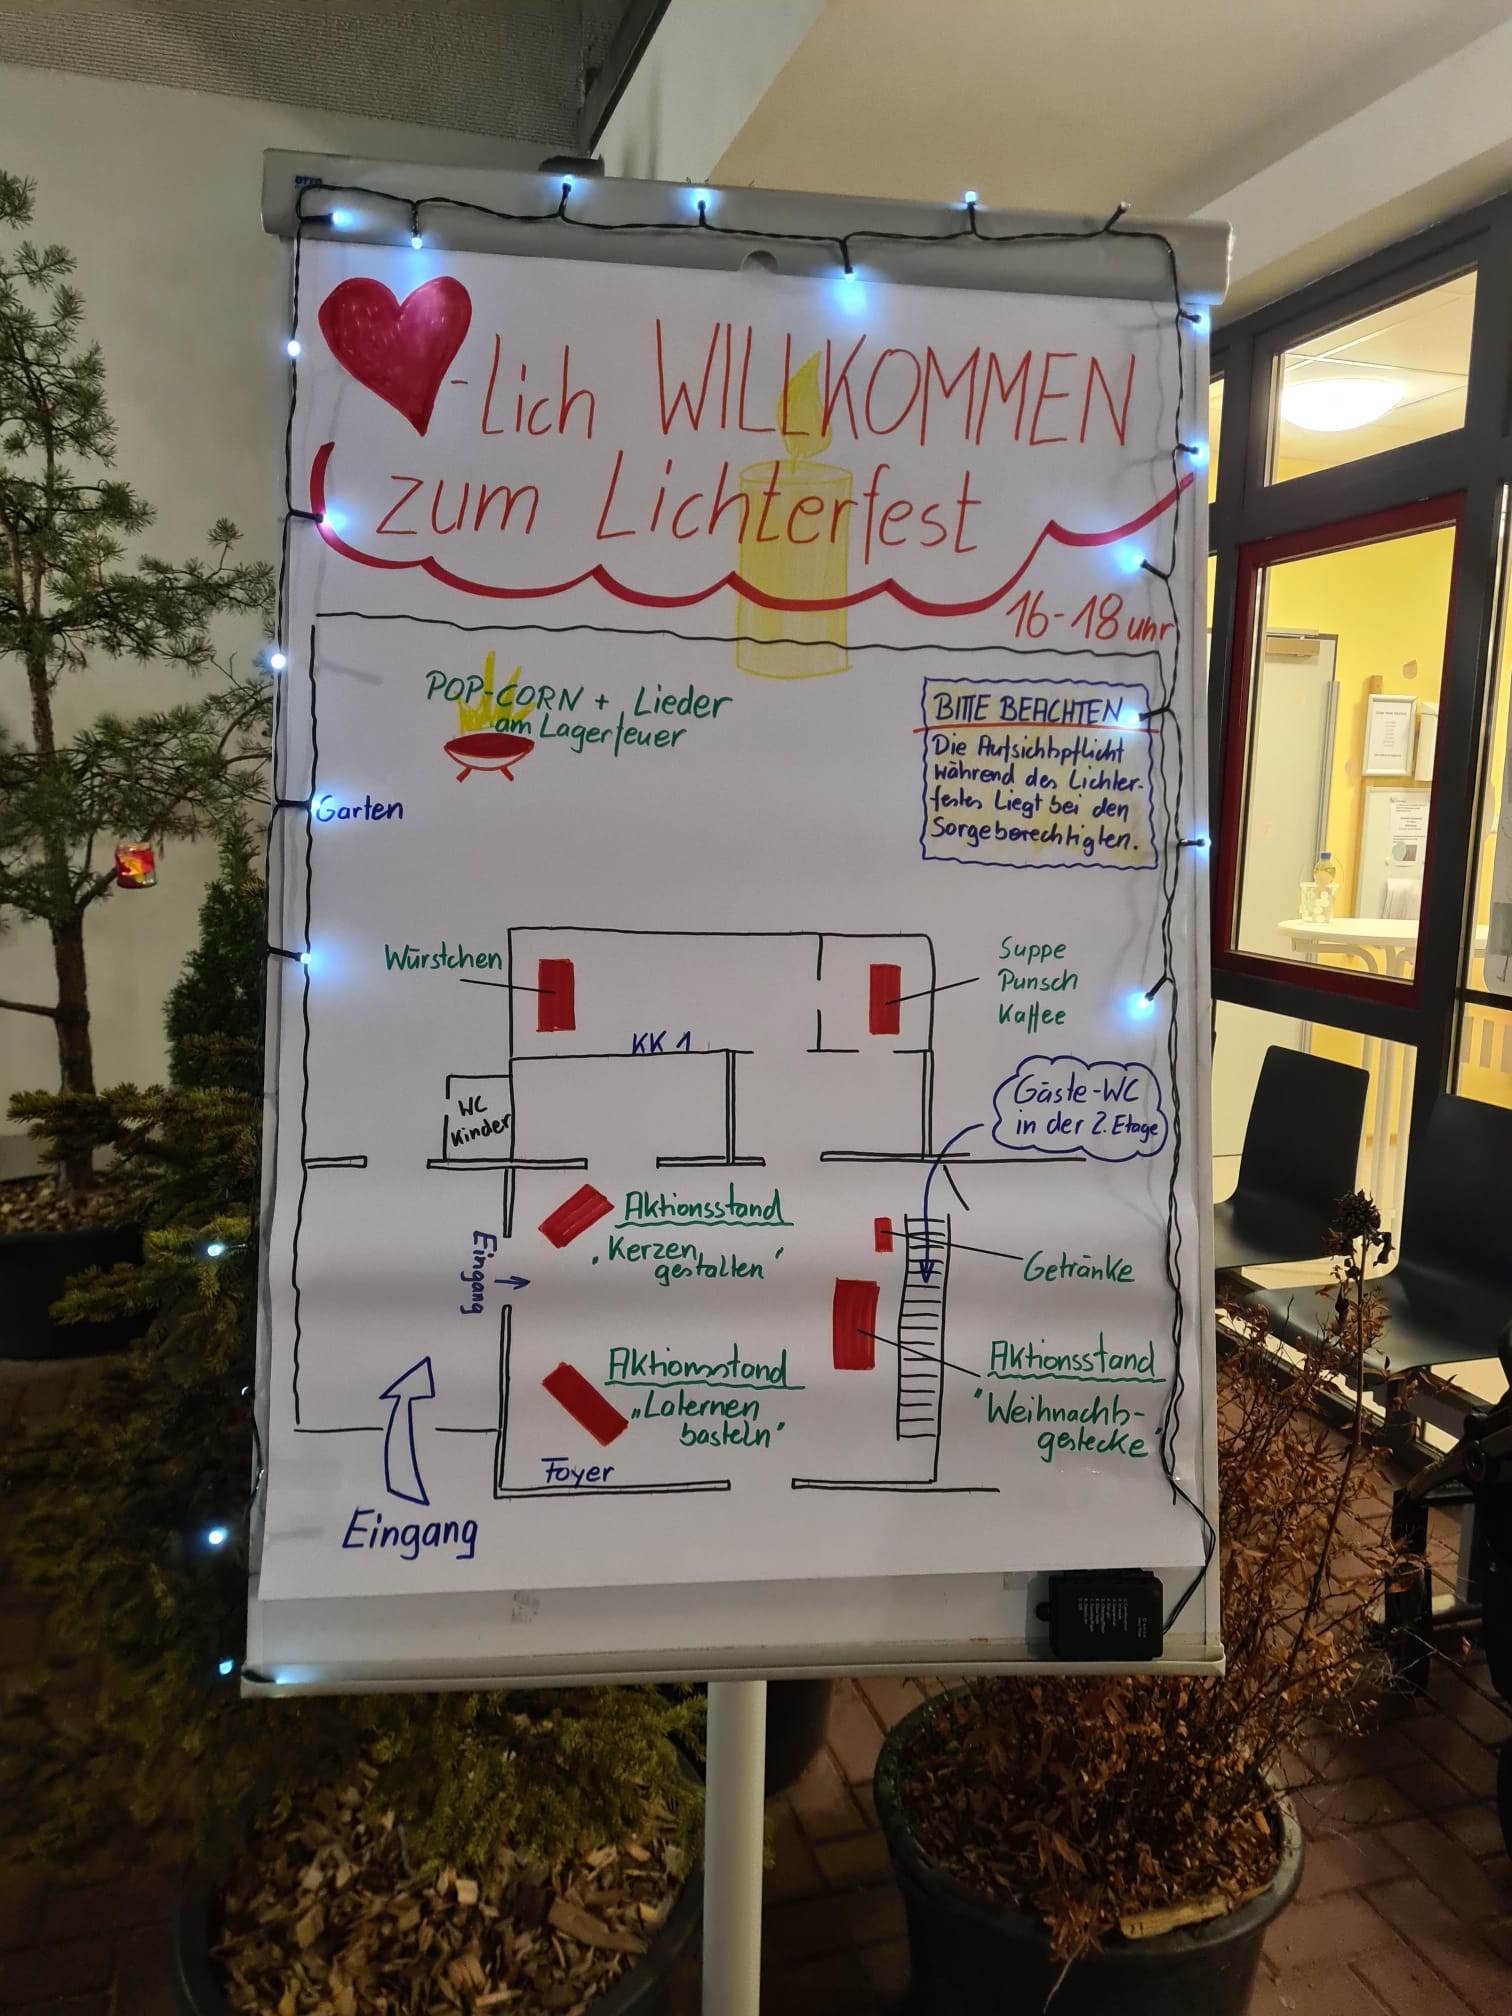 -lich WILLKOMMEN
zum Lichterfest
16-18 uhr
POP-CORN + Lieder
am Lagerfeuer
BITTE BEACHTEN
Die Aufsichtspflicht
während des Lichter-
festes Liegt bei den
Sorgeberechtigten.
Garten
Würstchen
Suppe
Punsch
Kaffee
KK 1
WC
Kinder
Gäste-WC
in der 2. Etage
Eingang
Aktionsstand
"Kerzen
gestalten"
Getränke
Aktionsstand
"Laternen
basteln"
Aktionsstand
"Weihnachts-
gestecke"
Foyer
Eingang